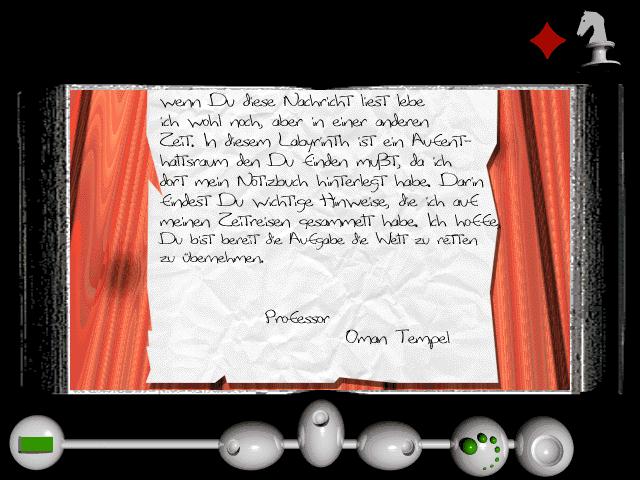 wenn Du diese Nachricht liest lebe
ich wohl noch, aber in einer anderen
Zeit. In diesem Labyrinth ist ein Aufent-
haltsraum den Du finden mußt, da ich
dort mein Notizbuch hinterlegt habe. Darin
findest Du wichtige Hinweise, die ich auf
meinen Zeitreisen gesammelt habe. Ich hoffe,
Du bist bereit die Aufgabe die Welt zu retten
zu übernehmen.
Professor
Oman Tempel